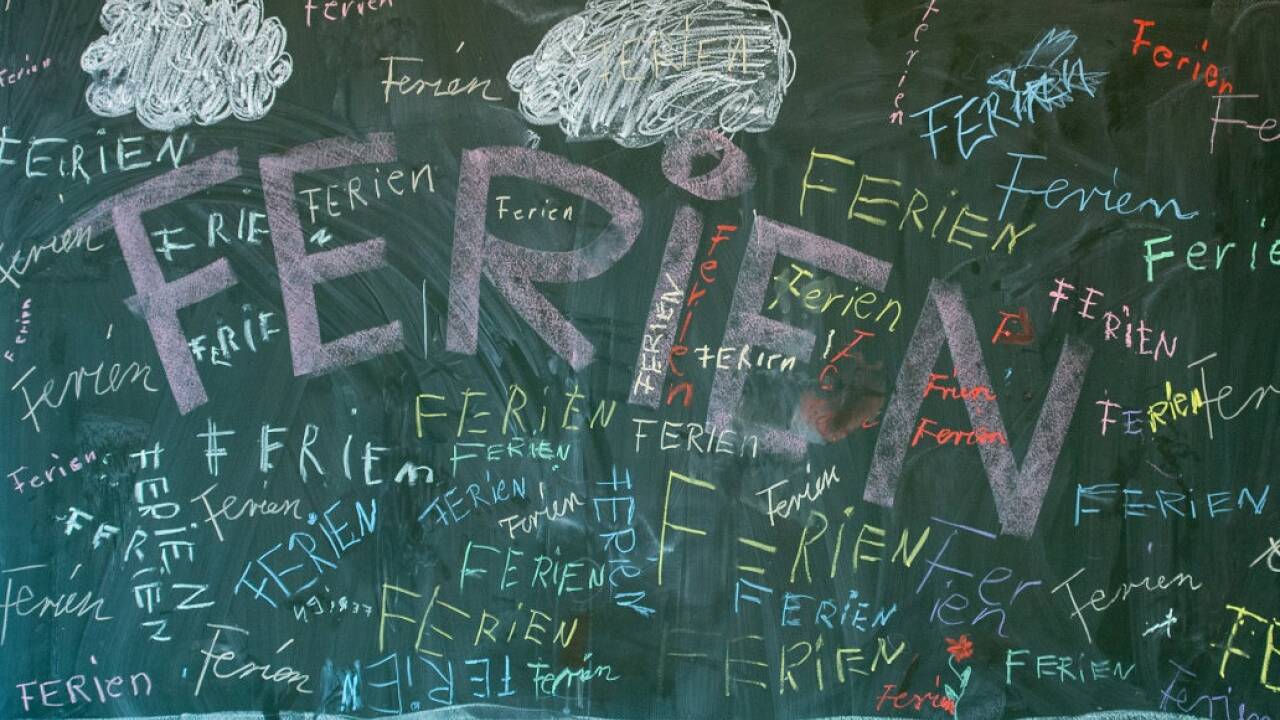 Ferien
Ferien
Ferien
FERIEN
Ferien
Ferien
FERIEN
Ferien
Fe
FERiEN
FERiEN
FERiEN
FERiEN
Ferien
FERiEN
Ferien
Ferien
FERIE
N
Ferie
Ferien
FERiEN
Ferien
Ferien
FERiEN
FERIEN
FERIE
FERiEn
F
Ferien
Frien
Ferien
FERiEN
Ferien
Fer
FERiEN
FERiEN
FERIEN
#FRIEm
Ferien
FERiEN
FERIEN
FERiEN
Ferien
FERIEN
Ferien
Ferien
FERIEN
FERIEN
FERiEN
FERiEN
Fer
ien
FERiEN
Ferien
Ferien
FERIEN
FERiEN
FERiEN
FERiEN
FERiEN
FE
FERien
Ferien
FERiEN
Ferien
Ferien
FERiEN
Ferien